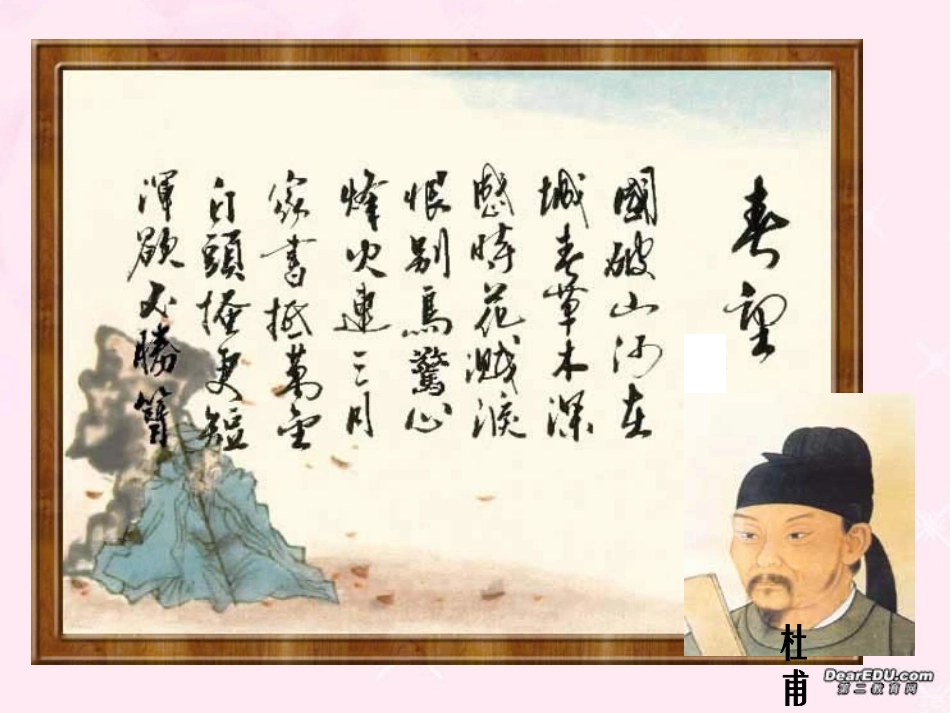 春望
國破山河在
城春草木深
感時花濺淚
恨別鳥驚心
烽火連三月
家書抵萬金
白頭搔更短
渾欲不勝簪
杜甫
DearEDU.com
第二教育网